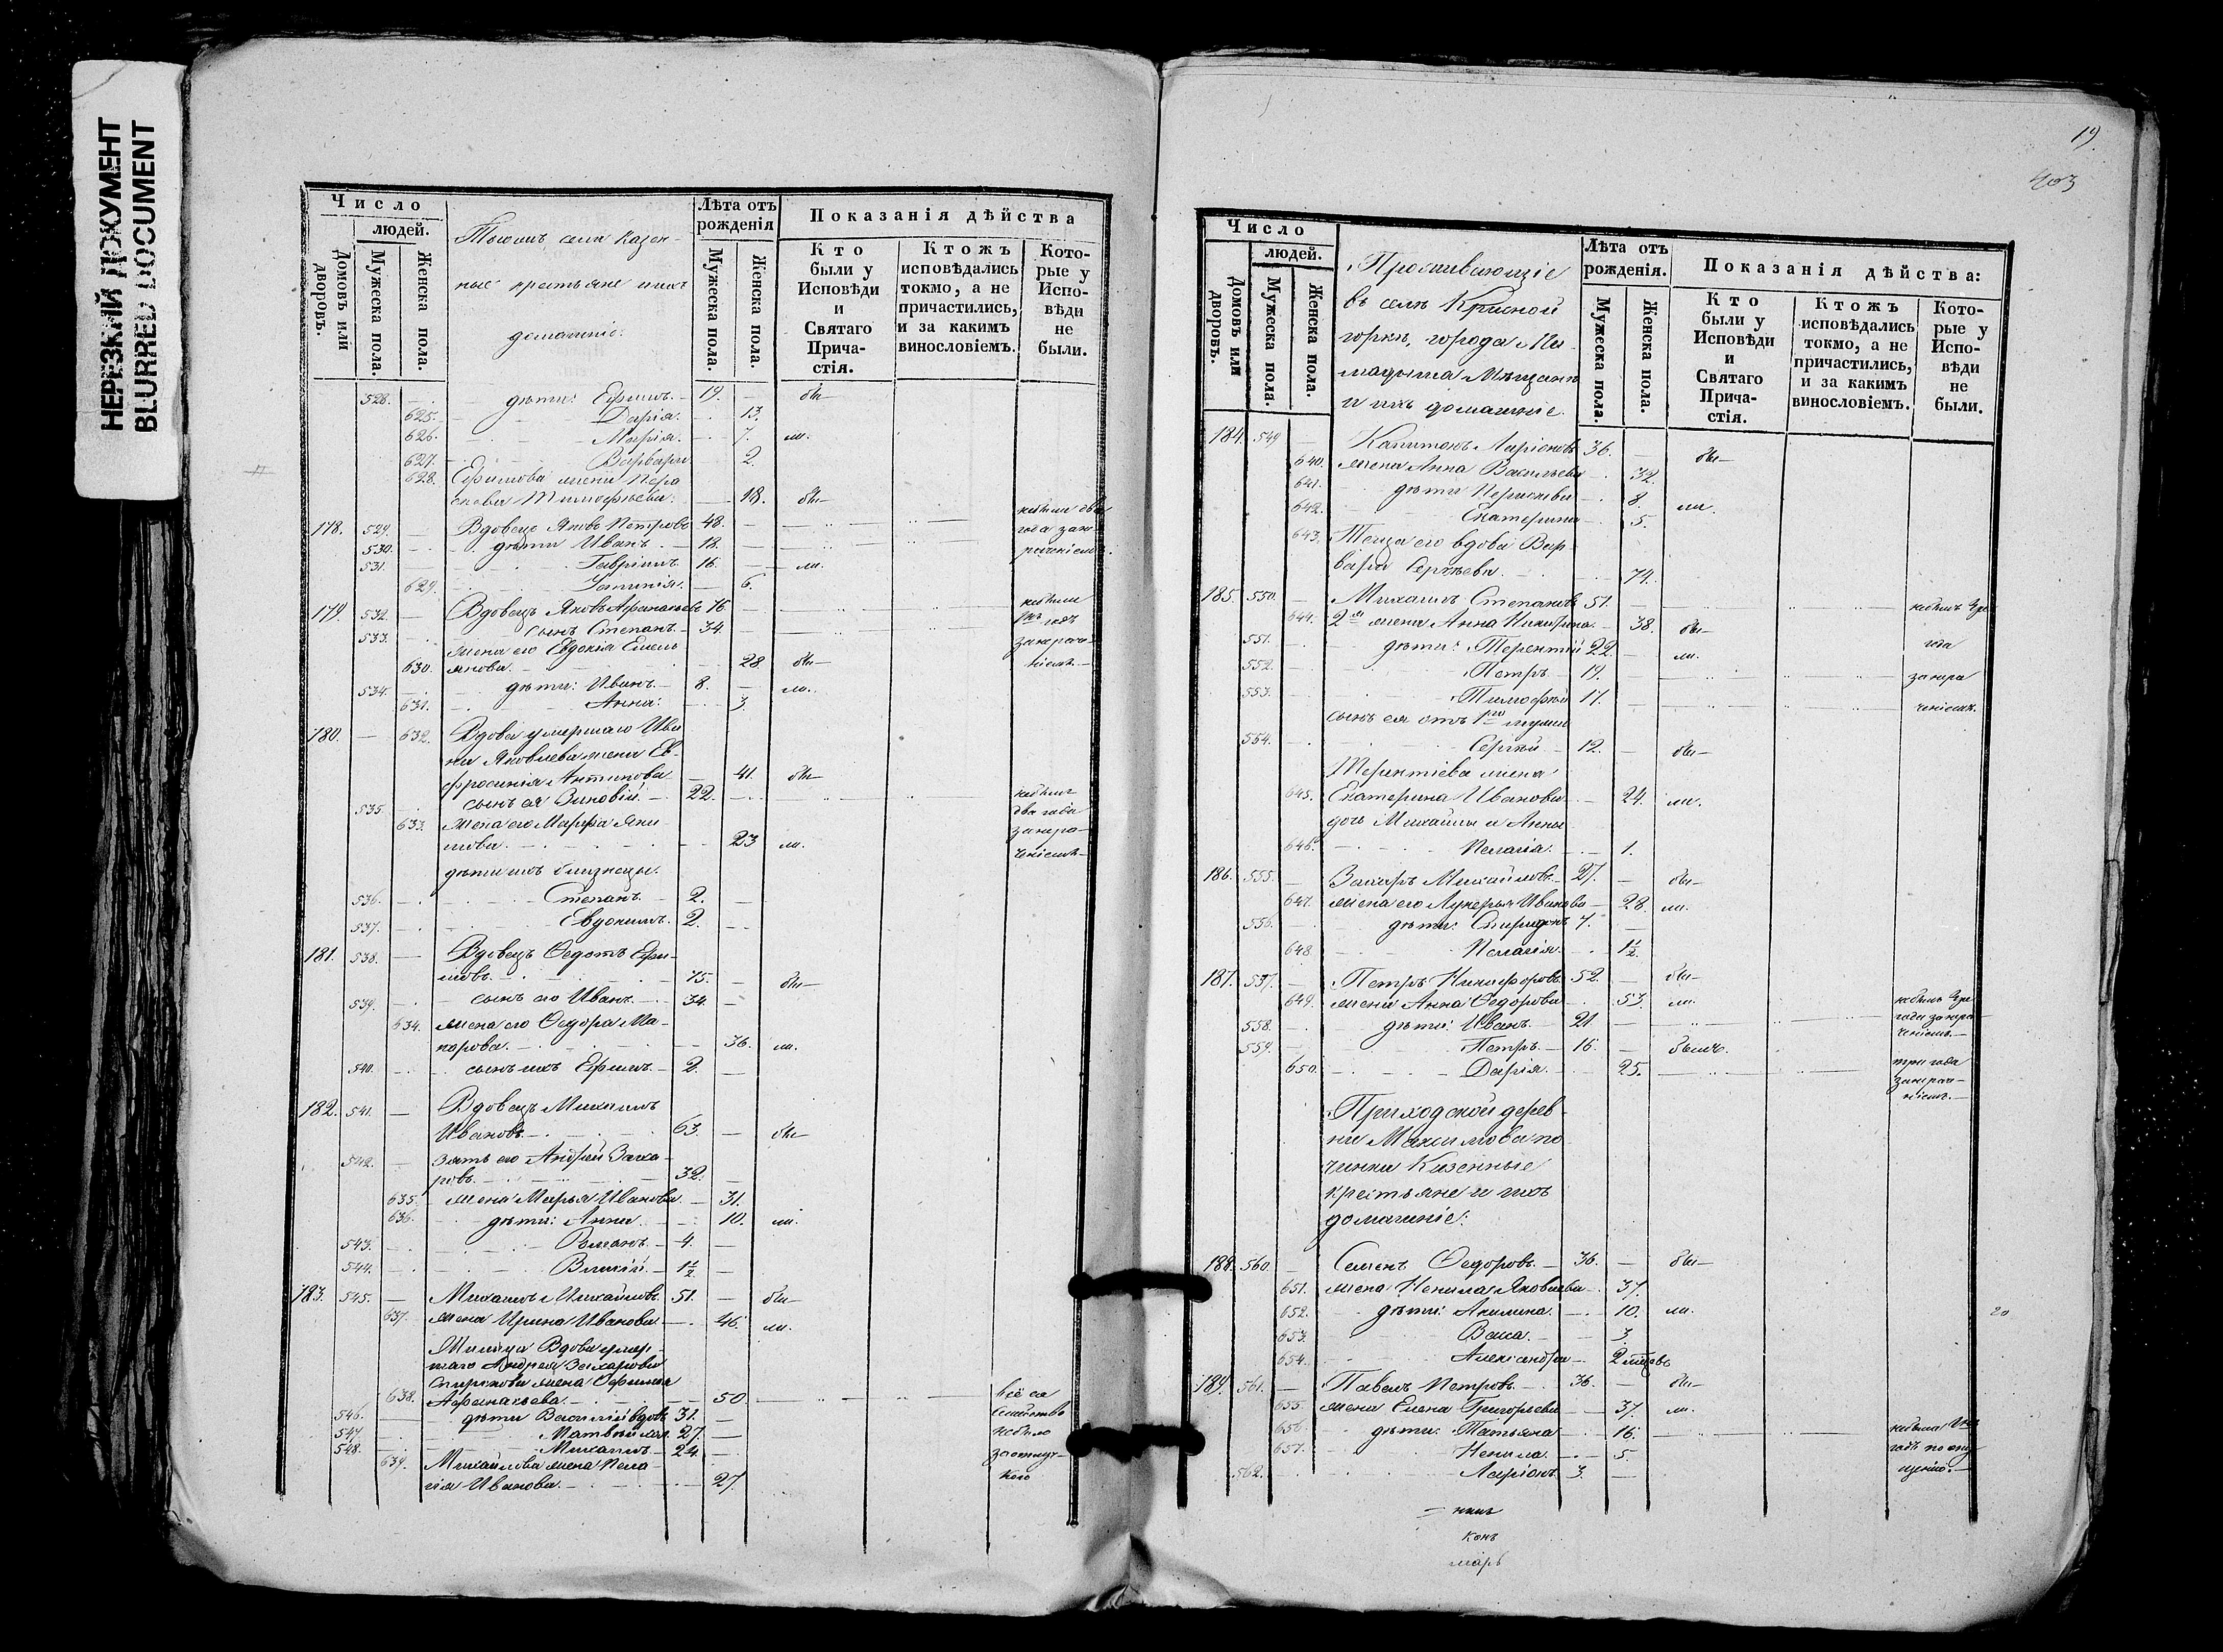 НЕРЕЗКИЙ ДОКУМЕНТ
BLURRED DOCUMENT
Число
людей.
Домовъ или дворовъ.
Мужеска пола.
Женска пола.
села казен-
ные крестьяне и ихъ
домашніе:
Лѣта отъ рожденія
Мужеска пола.
Женска пола.
Показанія дѣйства
Кто были у Исповѣди и Святаго Прича-стія.
Ктожъ исповѣдались токмо, а не причастились, и за какимъ винословіемъ.
Кото-рые у Испо-вѣди не были.
528. дѣти: Ефимъ. 19. бы
625. Дарія. 13.
626. Марія. 7. ли.
627. Варвара 2.
628. Ефимова жена Пера
скева Тимофѣева. 18. бы
178. 529. Вдовецъ Яковъ Петровъ 48. небыли два
530. дѣти Иванъ 18. года
531. Гавріилъ 16. ли.
629. 6.
179. 532. Вдовецъ Яковъ Афанасьевъ 76. небыли
533. сынъ Степанъ 34.
жена его Евдокія Емель
630. янова. 28 бы
534. дѣти: Иванъ. 8. ли.
631. Анна: 3.
180. 632. Вдова умершаго Ива
на Яковлева жена Ев-
фросинія Антипова 41. бы
535. сынъ ея Зиновій. 22. небылъ
633. жена его Марфа Яки два года
мова. 23 ли.
дѣти ихъ близнецы.
536. Степанъ. 2.
537. Евдокимъ. 2.
181. 538. Вдовецъ Ѳедотъ Ефи-
мовъ. 75. бы
539. сынъ его Иванъ. 34.
634. жена его Ѳедора Ма-
карова. 36. ли.
540. сынъ ихъ Ефимъ 2.
182. 541. Вдовецъ Михаилъ
Ивановъ 63. бы
542. зять его Андрей Заха-
ровъ. 32.
635. жена Марья Иванова. 31.
636. дѣти: Анна. 10. ли.
543. Романъ 4.
544. Василій. 1½
183. 545. Михаилъ Михайловъ. 51. бы
637. жена Ирина Иванова. 46. ли.
Вдова умер-
шаго Андрея Захарова
жена Ѳефимія
638. Афанасьева. 50. всё са
546. дѣти Василій вдовъ 31. семейство
547. Матвѣй 27. небыло
548. Михаилъ 24. заотлуч-
639. Михайлова жена Пела- кою
гія Иванова. 27.
19
403
Число
людей.
Домовъ или дворовъ.
Мужеска пола.
Женска пола.
Проживающіе
въ селѣ Красной
горкѣ, города Ма
мадыша Мѣщане
и ихъ домашніе.
Лѣта отъ рожденія.
Мужеска пола.
Женска пола.
Показанія дѣйства:
Кто были у Исповѣди и Святаго Прича-стія.
Ктожъ исповѣдались токмо, а не причастились, и за какимъ винословіемъ.
Кото-рые у Испо-вѣди не были.
184. 549 Капитонъ Ларіоновъ 36. бы
640. жена Анна Васильева 32.
641. дѣти Перасковья 8. ли.
642. Екатерина 5.
643. Теща его вдова Вар
вара Сергѣева. 74.
185. 550. Михаилъ Степановъ 51. небылъ три
644. 2я жена Анна Никитина. 38. бы
551. дѣти: Терентій 22. ли. года
552. Петръ 19. занера
553. Тимофей 17. ченіемъ
сынъ ея отъ 1го мужа
554. Сергѣй 12. бы
Терентіева жена
645. Екатерина Иванова 24. ли.
дочь Михаила и Анны
646. Пелагія. 1.
186. 555. Захаръ Михайловъ 27. бы
647. жена его Лукерья Иванова 28. ли.
556. дѣти: Спиридонъ 7.
648 Пелагія. 1½.
187. 557. Петръ Никифоровъ. 52. бы
649. жена Анна Ѳедорова 53. ли. небылъ три
558. дѣти: Иванъ. 21 года занера
559. Петръ. 16. былъ. ченіемъ.
650. Дарія. 25. три года
занера-
ченіемъ.
Приходской дерев
ни Максимова по
чинка Казенные
крестьяне и ихъ
домашніе:
188. 560. Семенъ Ѳедоровъ. 36. бы
651. жена Ненила Яковлева 37.
652. дѣти: Акилина. 10. ли.
653. Васса. 3.
654. Александра 2 мѣсяцъ
189. 561. Павелъ Петровъ. 36. бы
655. жена Елена Григорьева 37. ли.
656 дѣти: Татьяна 16. небыла
657. Ненила. 5. годъ по опу
562. Ларіонъ 3. щенію.
20